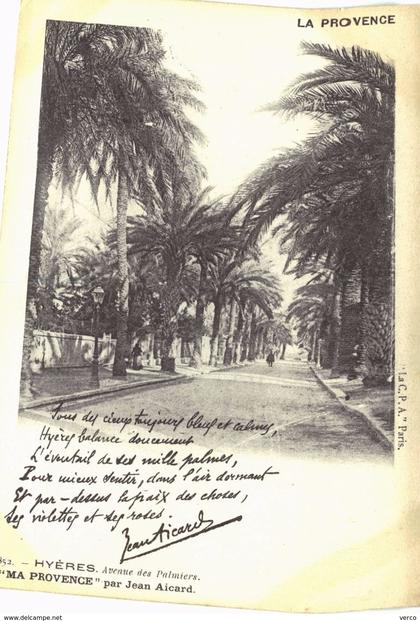 LA PROVENCE
Sous des cieux toujours bleus et calmes,
Hyères balance doucement
L'éventail de ses mille palmes,
Pour mieux sentir, dans l'air dormant
Et par-dessus la paix des choses,
Ses violettes et ses roses.
Jean Aicard
"La C. P. A." Paris.
852. - HYÈRES. Avenue des Palmiers.
"MA PROVENCE" par Jean Aicard.
verco